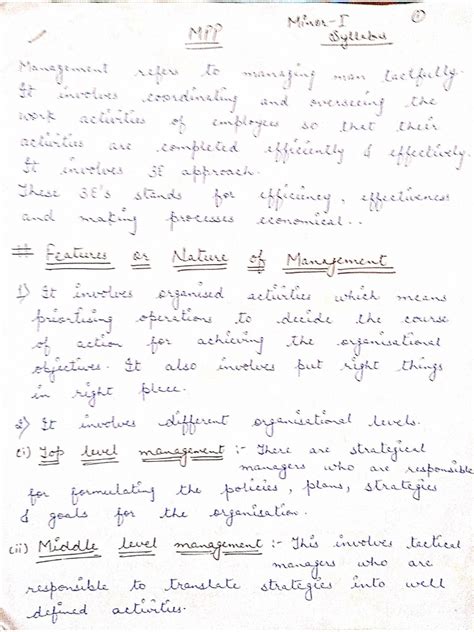 ①
Minor-I
MPP Syllabus
Management refers to managing man tactfully.
It involves coordinating and overseeing the
work activities of employees so that their
activities are completed efficiently & effectively.
It involves 3E approach.
These 3E's stands for efficiency, effectiveness
and making processes economical..
# Features or Nature of Management
1) It involves organised activities which means
prioritising operations to decide the course
of action for achieving the organisational
objectives. It also involves put right things
in right place.
2) It involves different organisational levels.
(i) Top level management :- There are strategical
managers who are responsible
for formulating the policies, plans, strategies
& goals for the organisation.
(ii) Middle level management :- This involves tactical
managers who are
responsible to translate strategies into well
defined activities.